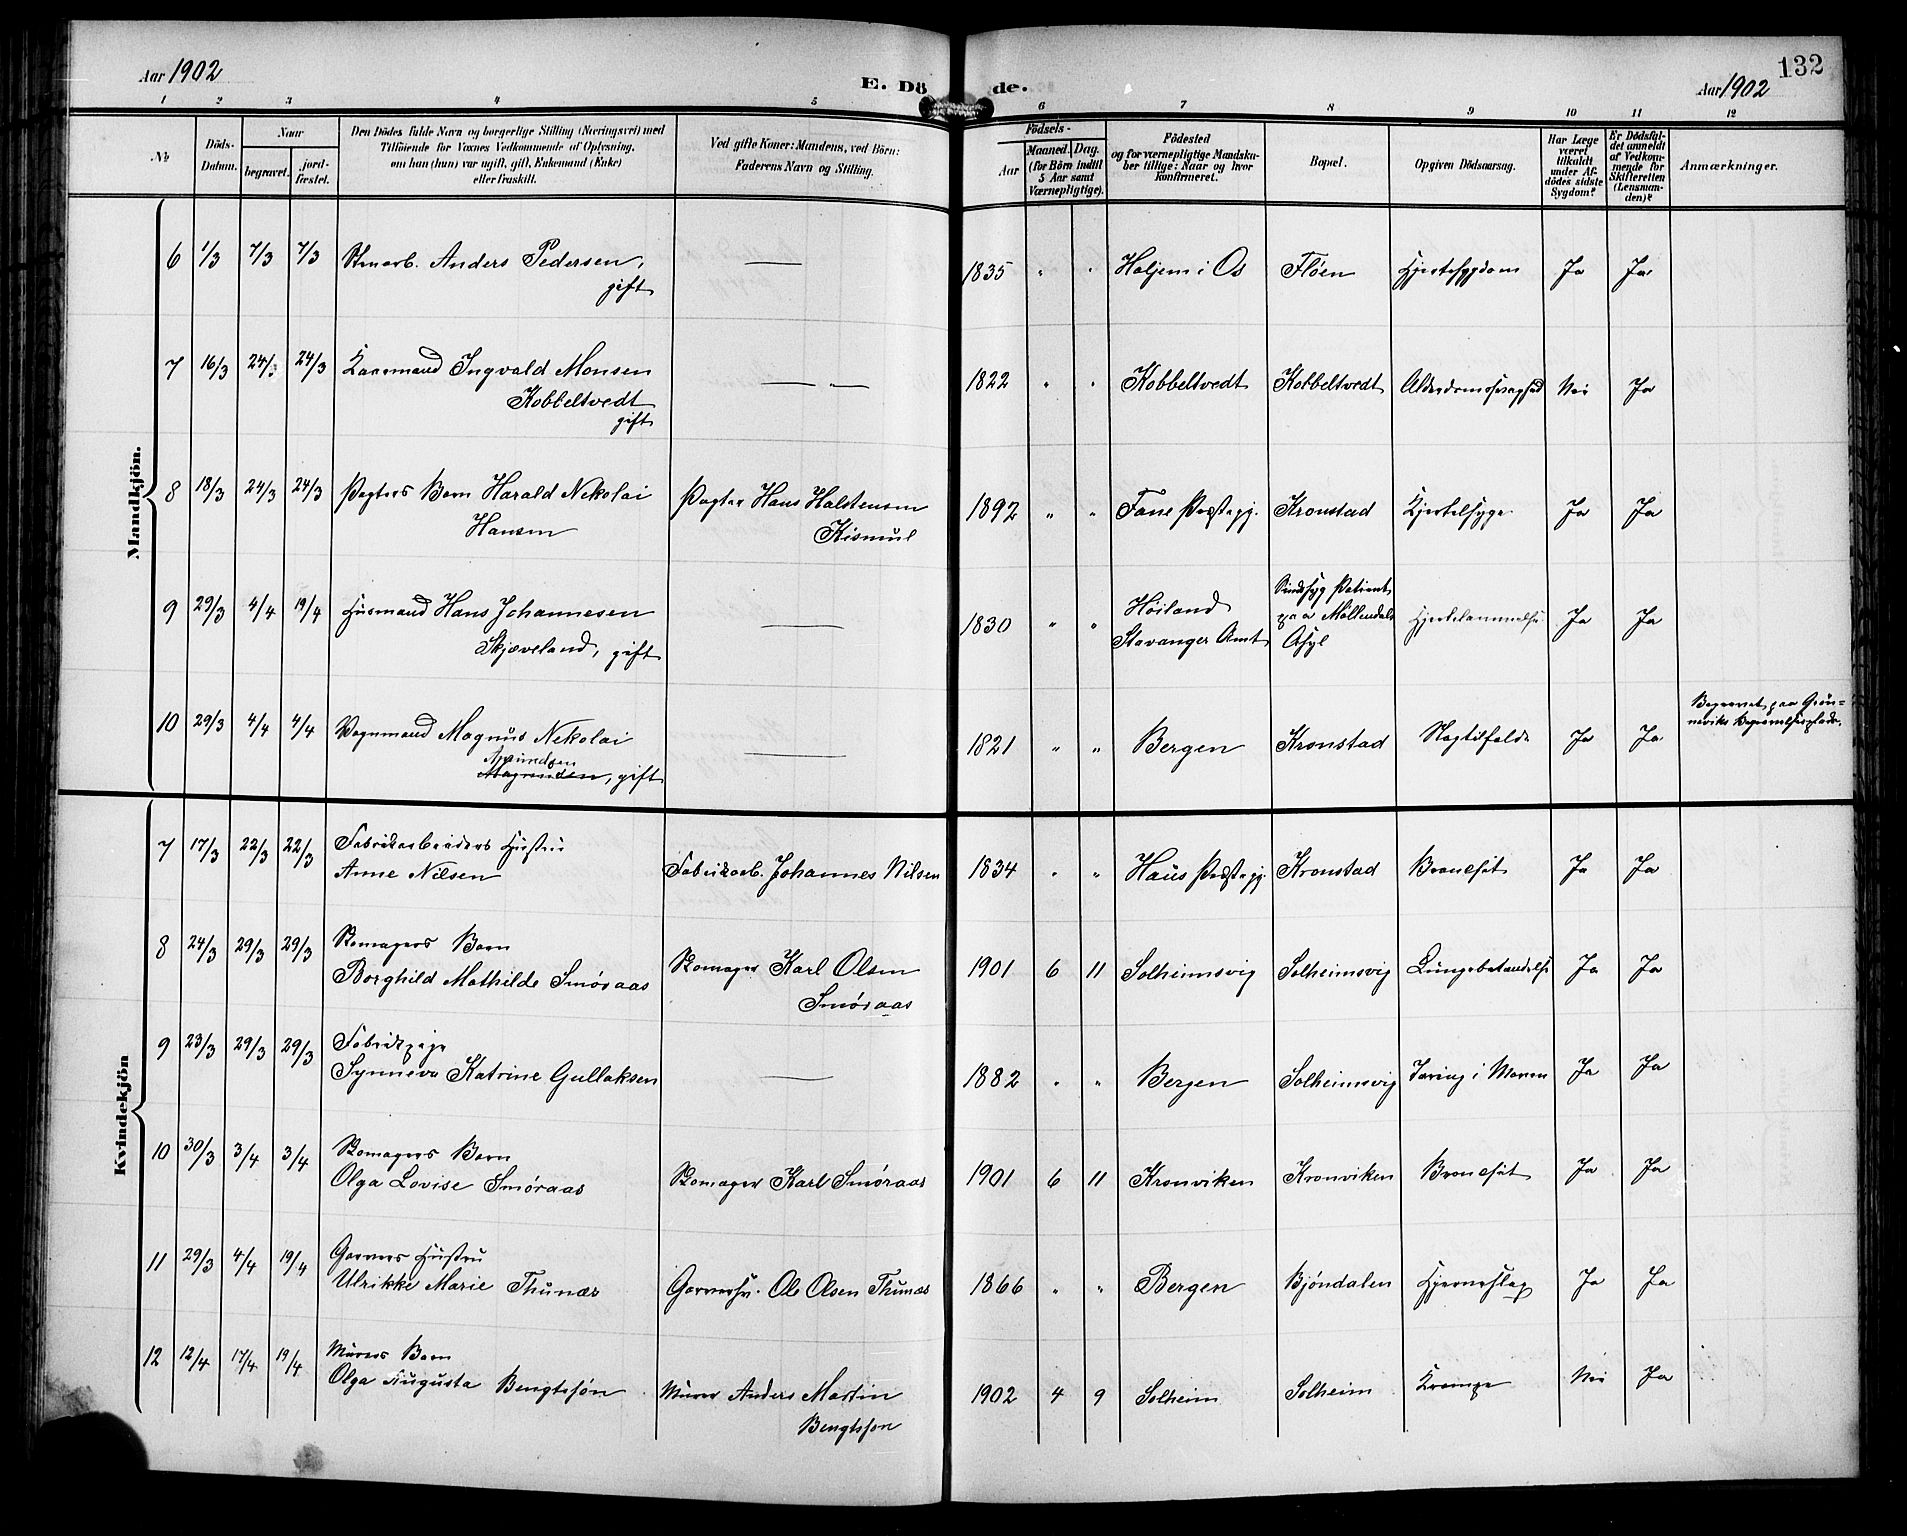 Aar 1902
E. Dö de.
132
Aar 1902
1 2 3 4 5 6 7 8 9 10 11 12
No
Döds-
Datum.
Naar
begravet.
jord-
fæstet.
Den Dödes fulde Navn og borgerlige Stilling (Næringsvei) med
Tilföiende for Voxnes Vedkommende af Oplysning,
om han (hun) var ugift, gift, Enkemand (Enke)
eller fraskilt.
Ved gifte Koner: Mandens, ved Börn:
Faderens Navn og Stilling.
Födsels-
Aar
Maaned.
Dag.
(for Börn indtil
5 Aar samt
Værnepligtige).
Födested
og for værnepligtige Mandska-
ber tillige: Naar og hvor
konfirmeret.
Bopæl.
Opgiven Dödsaarsag.
Har Læge
været
tilkaldt
under Af-
dödes sidste
Sygdom?
Er Dödsfal-
det anmeldt
af Vedkom-
mende for
Skifteretten
(Lensman-
den)?
Anmærkninger.
Mandkjön.
6 1/3 7/3 7/3 Anders Pedersen, — 1835 " " Holjem i Os Fløen Hjertesygdom Ja Ja
gift
7 16/3 24/3 24/3 Kaarmand Ingvald Monsen — — 1822 " " Kobbeltvedt Kobbeltvedt Alderdomssvaghed Nei Ja
Kobbeltvedt
gift
8 18/3 24/3 24/3 Pagters Barn Harald Nikolai Pagter Hans Halstensen 1892 " " Fane Præstegj. Kronstad Kjertelsyge Ja Ja
Hansen Kismul
9 29/3 4/4 19/4 Husmand Hans Johannesen — 1830 " " Höiland Sindssyg Patient
Skjæveland, gift Stavanger Amt paa Möllendals Hjertelammelse Ja Ja
Asyl
10 29/3 4/4 4/4 Vognmand Magnus Nikolai — 1821 " " Bergen Kronstad Slagtilfælde Ja Ja Begravet paa Grön-
neviks Begravelsesplads.
Amundsen
Magnusen, gift
Kvindekjön
7 17/3 22/3 22/3 Fabrikarbeiders Hustru
Anne Nilsen Fabrikarb. Johannes Nilsen 1834 " " Haus Præstegj. Kronstad Bronchit Ja Ja
8 24/3 29/3 29/3 Skomagers Barn
Borghild Mathilde Smøraas Skomager Karl Olsen 1901 6 11 Solheimsvig Solheimsvig Lungebetændelse Ja Ja
Smøraas
9 23/3 29/3 29/3 Fabrikpige
Synneva Katrine Gullaksen — 1882 " " Bergen Solheimsvig Tæring i Maven Ja Ja
10 30/3 3/4 3/4 Skomagers Barn
Olga Lovise Smøraas Skomager Karl Smøraas 1901 6 11 Kronviken Kronviken Bronchit Ja Ja
11 29/3 4/4 19/4 Garvers Hustru
Ulrikke Marie Thunæs Garversv. Ole Olsen Thunæs 1866 " " Bergen Bjöndalen Hjerneslag Ja Ja
12 12/4 17/4 19/4 Murers Barn
Olga Augusta Bengtssøn Murer Anders Martin 1902 4 9 Solheim Solheim Krampe Nei Ja
Bengtsson